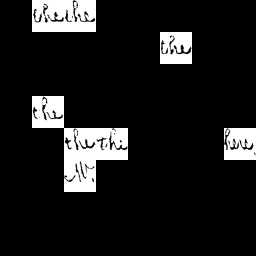 the the
the
the
the thi here,
W.